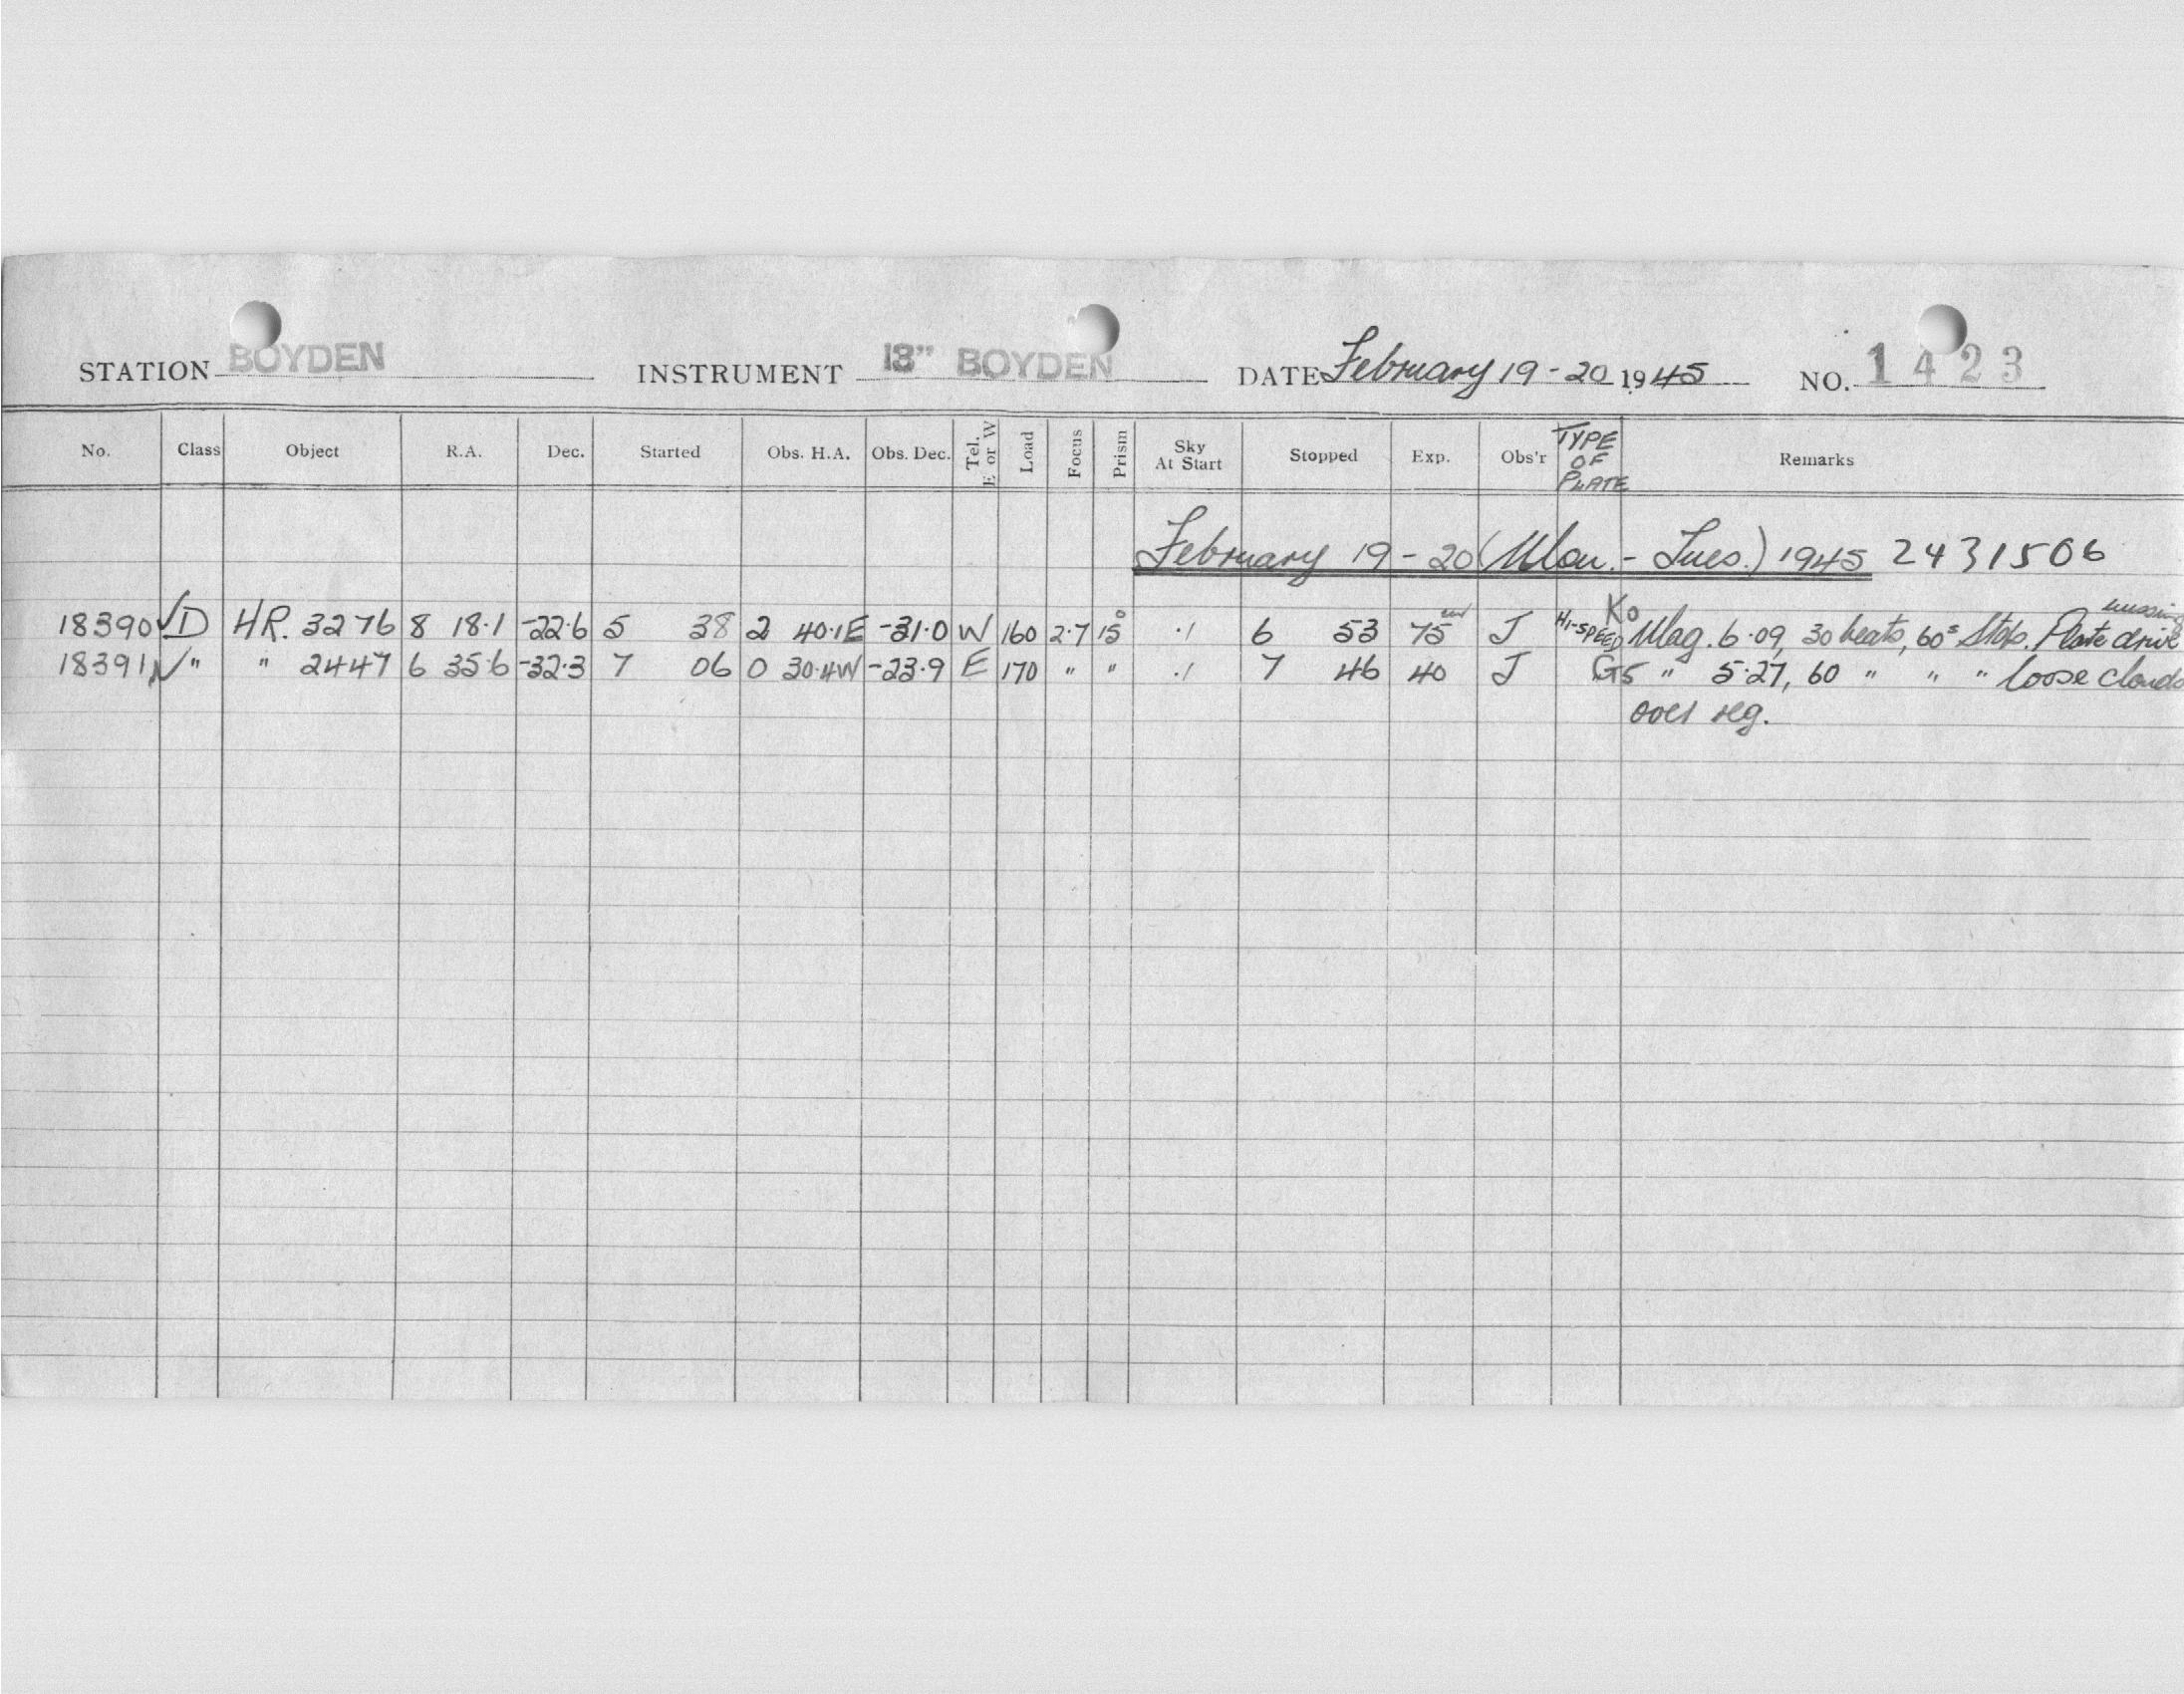 STATION BOYDEN INSTRUMENT 13" BOYDEN DATE February 19-20 1945 NO. 1423
No. Class Object R.A. Dec. Started Obs. H.A. Obs. Dec. Tel. E or W Load Focus Prism Sky At Start Stopped Exp. Obs'r TYPE OF PLATE Remarks
February 19-20 (Mon.-Tues.) 1945 2431506
18390 √ D HR. 3276 8 18.1 -22.6 5 38 2 40.1E -31.0 W 160 2.7 15° .1 6 53 75 J HI-SPEED K0 Mag. 6.09, 30 beats, 60s Stop. Plate drive missing
18391 √ " " 2447 6 35.6 -32.3 7 06 0 30.4W -23.9 E 170 " " .1 7 46 40 J G5 " 5.27, 60 " " " loose clouds
over reg.